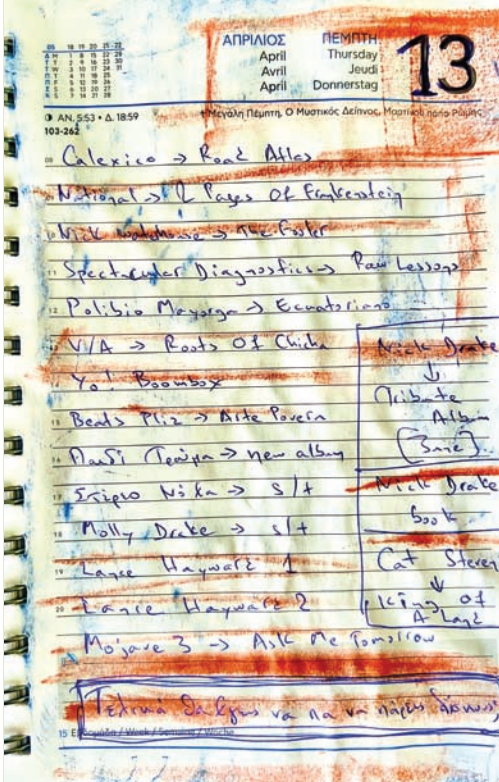 ΑΠΡΙΛΙΟΣ ΠΕΜΠΤΗ
April Thursday
Avril Jeudi
April Donnerstag
13
ΑΝ. 5:53 • Δ. 18:59
103-262
Μεγάλη Πέμπτη, Ο Μυστικός Δείπνος,
Calexico → Road Atlas
National → 2 Pages Of Frankenstein
Nick Waterhouse → The Fooler
Spectacular Diagnostics → Raw Lessons
Polibio Mayorga → Ecuatoriano
V/A → Roots Of Chicha
Yo! Boombox
Beats Pliz → Arte Povera
Παιδί Τραύμα → new album
Στέρεο Νόβα → s/t
Molly Drake → s/t
Lance Hayward 1
Lance Hayward 2
Mojave 3 → Ask Me Tomorrow
Nick Drake
↓
Tribute
Album
Nick Drake
book
Cat Steven
↓
King of
A Land
Τελικά θα έχεις να πα να πάρεις
15 Εβδομάδα / Week / Semaine / Woche